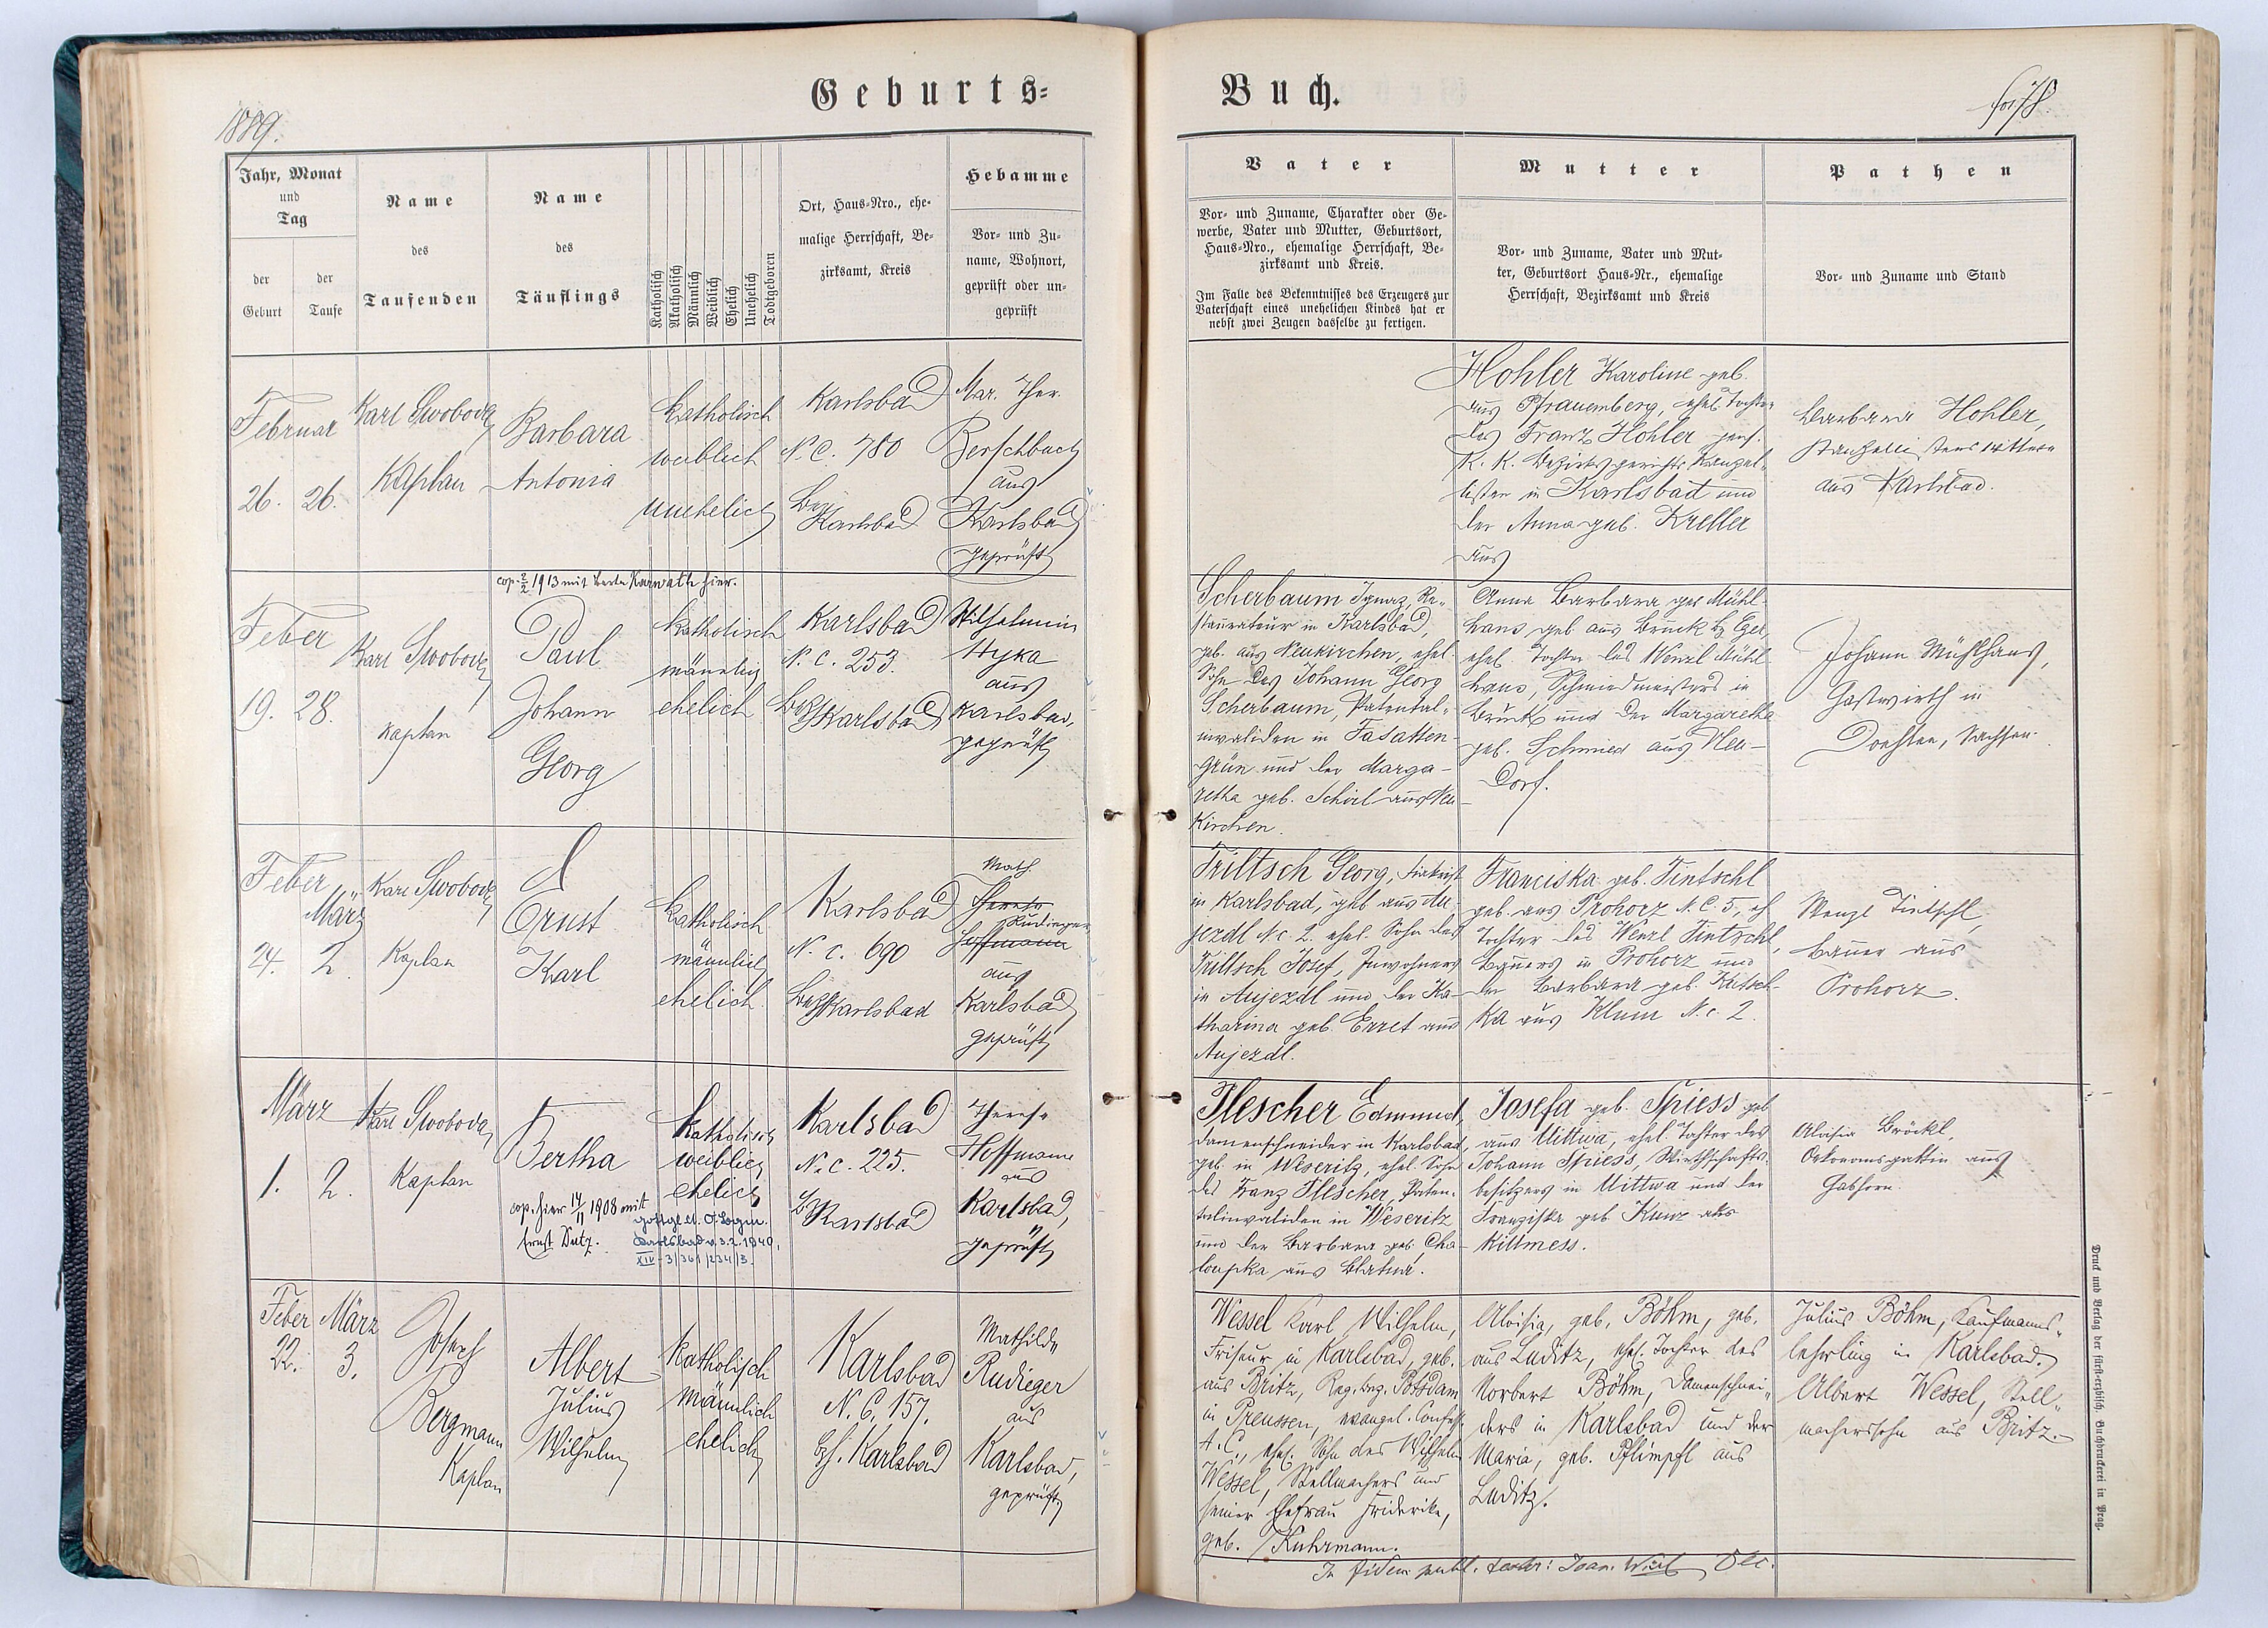 Geburts=
Buch.
1889.
Jahr, Monat
und
Tag
der
Geburt
der
Taufe
Name
des
Taufenden
Name
des
Täuflings
Katholisch
Akatholisch
Männlich
Weiblich
Ehelich
Unehelich
Todtgeboren
Ort, Haus=Nro., ehe=
malige Herrschaft, Be=
zirksamt, Kreis
Hebamme
Vor= und Zu=
name, Wohnort,
geprüft oder un=
geprüft
Vater
Vor= und Zuname, Charakter oder Ge=
werbe, Vater und Mutter, Geburtsort,
Haus=Nro., ehemalige Herrschaft, Be=
zirksamt und Kreis.
Im Falle des Bekenntnisses des Erzeugers zur
Vaterschaft eines unehelichen Kindes hat er
nebst zwei Zeugen dasselbe zu fertigen.
Mutter
Vor= und Zuname, Vater und Mut=
ter, Geburtsort Haus=Nr., ehemalige
Herrschaft, Bezirksamt und Kreis
Pathen
Vor= und Zuname und Stand
Februar
26. 26.
Karl Swoboda
Kaplan
Barbara
Antonia
katholisch
weiblich
unehelich
Karlsbad
N. C. 780
Bez. Karlsbad
Mar. Ther.
Berschbach
aus
Karlsbad
geprüft
Hohler Karoline geb.
aus Pfrauemberg, ehel. Tochter
des Franz Hohler pens.
K. K. Bezirksgerichts Kanzel=
listen in Karlsbad und
der Anna geb. Kreller
aus
Barbara Hohler,
Kanzellistenswittwe
aus Karlsbad.
Feber
19. 28.
Karl Swoboda
Kaplan
cop. 2/2 1913 mit Berta Karwath hier.
Paul
Johann
Georg
katholisch
männlich
ehelich
Karlsbad
N. c. 253.
Bez Karlsbad
Wilhelmin
Hyka
aus
Karlsbad,
geprüft
Scherbaum Ignaz, Re=
staurateur in Karlsbad,
geb. aus Neukirchen, ehel.
Sohn des Johann Georg
Scherbaum, Patental=
invaliden in Fasatten=
grün und der Marga=
retha geb. Schörl aus Neu=
kirchen.
Anna Barbara geb Mühl=
hans geb aus Bruck bz Eger,
ehel. Tochter des Wenzl Mühl
hans, Schmiedmeisters in
Bruck und der Margaretha
geb. Schmied aus Neu=
dorf.
Johann Mühlhans,
Gastwirth in
Dresden, Sachsen.
Feber März
24. 2.
Karl Swoboda
Kaplan
Ernst
Karl
katholisch
männlich
ehelich
Karlsbad
N. c. 690
Bez Karlsbad
Math.
Therese
Rudieger
Hoffmann
aus
Karlsbad
geprüft
Triltsch Georg,
in Karlsbad, geb aus Au=
jezdl N. c. 2. ehel. Sohn des
Triltsch Josef, Inwohners
in Aujezdl und der Ka=
tharina geb. Erret aus
Aujezdl.
Franciska geb. Tintschl
geb. aus Prohorz N. C. 5, eh
Tochter des Wenzl Tintschl,
Bauers in Prohorz und
der Barbara geb. Kutsch=
ka aus Klum N. c. 2.
Wenzl Tintschl,
Bauer aus
Prohorz.
März
1. 2.
Karl Swoboda,
Kaplan
Bertha
cop. hier 14/11 1908 mit
Ernst Dutz.
Karlsbad v. 3.2.1940,
XIV-3/361/234/3.
katholisch
weiblich
ehelich
Karlsbad
N. c. 225.
Bz Karlsbad
Therese
Hoffmann
aus
Karlsbad,
geprüft
Flescher Edmund,
Damenschneider in Karlsbad,
geb. in Weseritz, ehel. Sohn
des Franz Flescher, Paten=
talinvaliden in Weseritz
und der Barbara geb. Cha=
loupka aus Blatna.
Josefa geb. Spiess geb
aus Uittwa, ehel. Tochter des
Johann Spiess, Wirthschafts=
besitzers in Uittwa und der
Franziska geb Kunz aus
Rittmess.
Aloisia Bröckl,
Oekonomsgattin aus
Gabhorn.
Feber März
22. 3.
Josef
Bergmann
Kaplan
Albert
Julius
Wilhelm
katholisch
männlich
ehelich
Karlsbad
N. C. 157.
bzh. Karlsbad
Mathilde
Rudieger
aus
Karlsbad,
geprüft
Wessel Karl Wilhelm,
Friseur in Karlsbad, geb.
aus Britz, Reg. bez. Potsdam
in Preussen, evangel. Confess.
A. C., ehel. Sohn des Wilhelm
Wessel, Stellmachers und
seiner Ehefrau Friderike,
geb. Kuhrmann.
Aloisia, geb. Böhm, geb.
aus Luditz, ehel. Tochter des
Norbert Böhm, Damenschnei=
ders in Karlsbad und der
Maria, geb. Pflimpfl aus
Luditz.
Julius Böhm, Kaufmanns=
lehrling in Karlsbad.
Albert Wessel, Stell=
macherssohn aus Britz.
Druck und Verlag der fürst=erzbisch. Buchdruckerei in Prag.